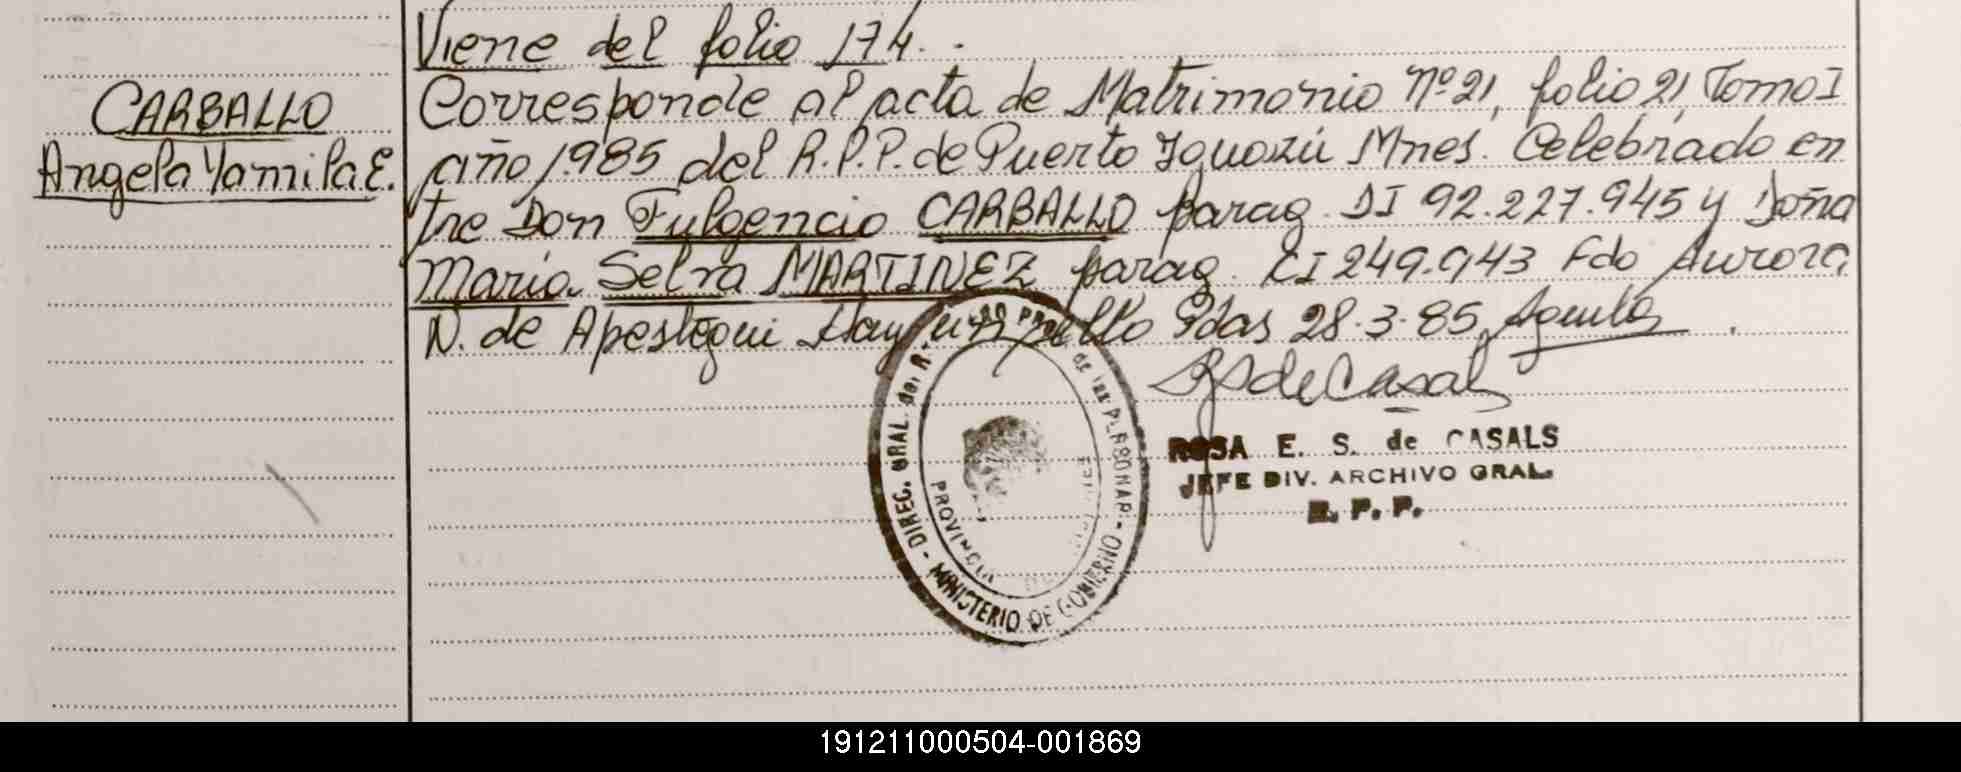 CARBALLO
Angela Yamila E.
Viene del folio 174.
Corresponde al acta de Matrimonio Nº 21, folio 21, Tomo I
año 1.985 del R.P.P. de Puerto Iguazú Mnes. Celebrado en
tre Don Fulgencio CARBALLO parag. DI 92.227.945 y Doña
Maria Selva MARTINEZ parag. CI 249.943 Fdo Aurora
N. de Apestegui Hay un sello Pdas 28.3.85
ROSA E. S. de CASALS
JEFE DIV. ARCHIVO GRAL.
R. P. P.
DIREC. GRAL. del R. de las PERSONAS - MINISTERIO DE GOBIERNO -
PROVINCIA
191211000504-001869